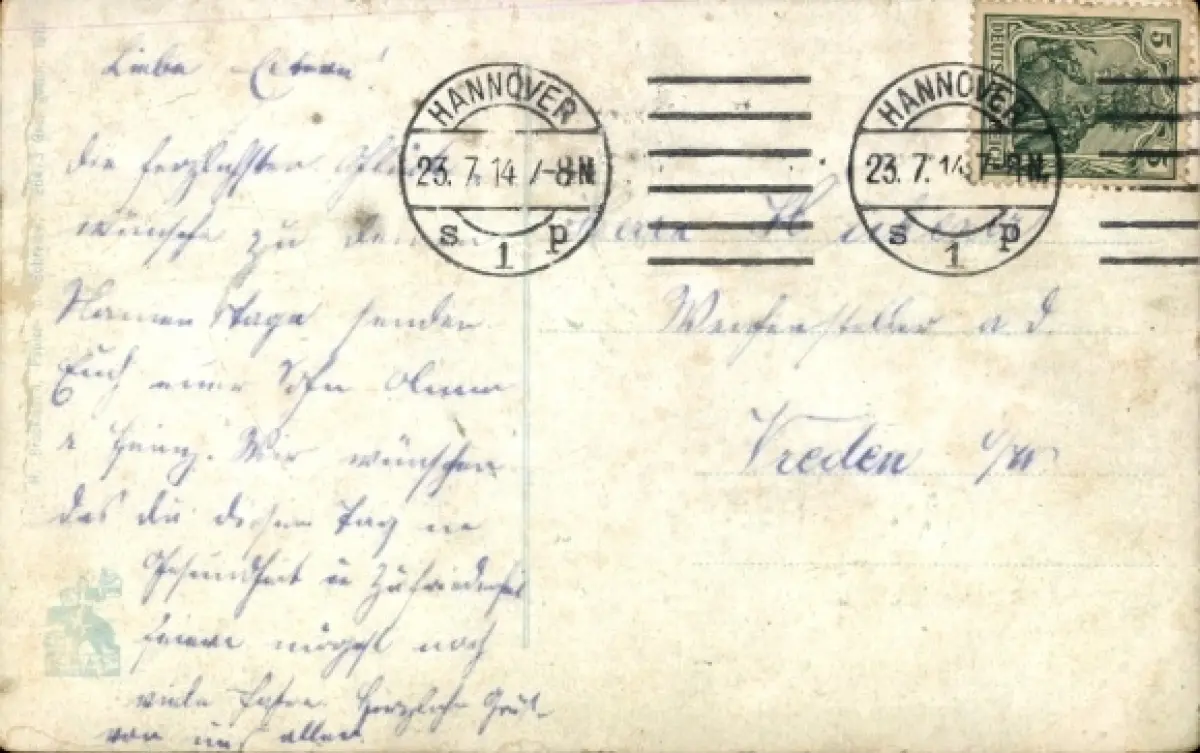 Liebe Eltern!
die herzlichsten Glück
wünsche zu deinem
Namenstage senden
Euch euer Sohn
u Heinz. Wir wünschen
das du diesen Tag in
Gesundheit u Zufriedenheit
feiern mögest noch
viele Jahre. Herzliche Grüße
von uns allen.
HANNOVER
23. 7. 14 7-8 N.
s 1 p
HANNOVER
23. 7. 14 7-8 N.
s 1 p
5
DEUTSCHES REICH
5
Herrn H.
Weichensteller a D.
Vreden i/W